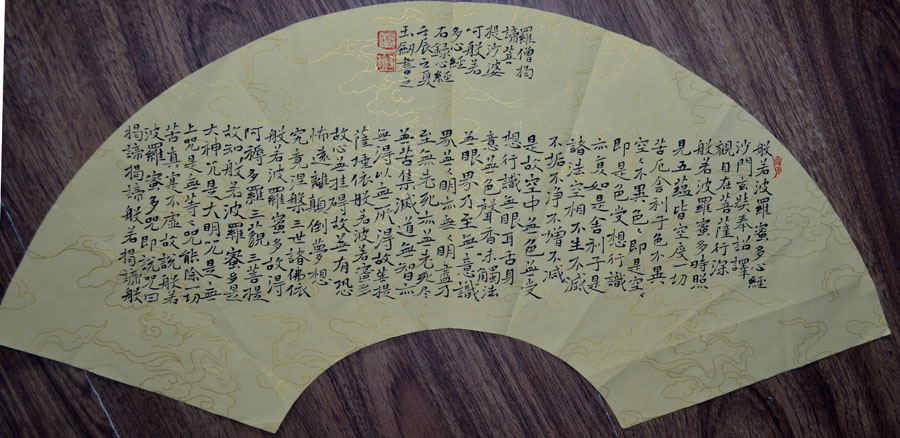 般若波羅蜜多心經
沙門玄奘奉詔譯
觀自在菩薩行深
般若波羅蜜多時照
見五蘊皆空度一切
苦厄舍利子色不異
空〻不異色〻即是空〻
即是色受想行識
亦復如是舍利子是
諸法空相不生不滅
不垢不淨不增不減
是故空中無色無受
想行識無眼耳舌身
意無色聲香味觸法
無眼界乃至無意識
界無〻明亦無〻明盡乃
至無老死亦無老死尽
無苦集滅道無智亦
無得以無所得故菩提
薩埵依般若波羅蜜多
故心無挂碍故無有恐
怖遠離顛倒夢想
究竟涅槃三世諸佛依
般若波羅蜜多故得
阿耨多羅三藐三菩提
故知般若波羅蜜多是
大神咒是大明咒是無
上咒是無等咒能除一切
苦真實不虛故說般若
波羅蜜多咒即說咒曰
揭諦揭諦般若揭諦般
羅僧揭
諦菩
提沙婆
可般若
多心經
石録心經
壬辰之夏
玉劍書之